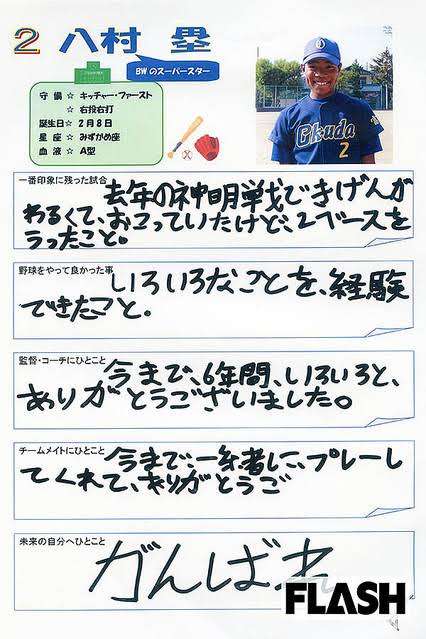 2 八村 塁
BWのスーパースター
守 備☆ キッチャー・ファースト
☆ 右投右打
誕生日☆ 2月8日
星 座☆ みずがめ座
血 液☆ A型
Okuda
2
一番印象に残った試合
去年の神明戦できげんが
わるくて、おこっていたけど、2ベースを
うったこと。
野球をやって良かった事
いろいろなことを、経験
できたこと。
監督・コーチにひとこと
今まで、6年間、いろいろと、
ありがとうございました。
チームメイトにひとこと
今まで、一緒に、プレーし
てくれて、ありがとうご
未来の自分へひとこと
がんばれ
FLASH